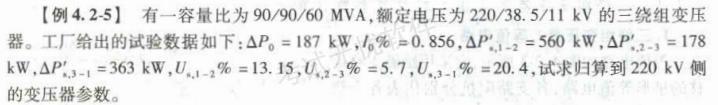 【例 4.2-5】 有一容量比为 90/90/60 MVA,额定电压为 220/38.5/11 kV 的三绕组变压
器。工厂给出的试验数据如下:ΔP₀ = 187 kW,I₀% = 0.856,ΔP′ₛ,₁₋₂ = 560 kW,ΔP′ₛ,₂₋₃ = 178
kW,ΔP′ₛ,₃₋₁ = 363 kW,Uₛ,₁₋₂% = 13.15,Uₛ,₂₋₃% = 5.7,Uₛ,₃₋₁% = 20.4,试求归算到 220 kV 侧
的变压器参数。